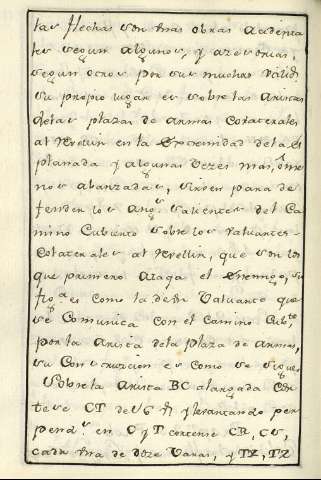 las flechas son unas obras accidenta
les segun algunos, y
segun otros por sus muchas salidas
su propio lugar es sobre las Aristas
delas plazas de Armas Colaterales
al Revellin en la Extremidad dela es
planada y algunas vezes mas, ô me
nos abanzadas, sirven para de
fender los Angs. salientes del Ca
mino Cubierto sobre los
Colaterales al Revellin, que son los
que primero ataca el Enemigo, su
fig.a es como la de un que
se Comunica con el camino Cubto.
por la Arista dela Plaza de Armas,
su Construccion es como se sigue
Sobre la Arista BC alargada Cor
tese CT de y levantando per
pends. en C y T cortense CR, CS,
cada una de doze Varas, y TX, TZ